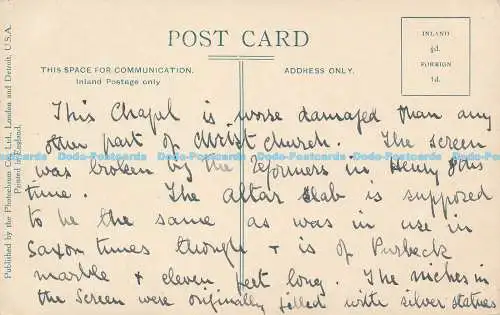 POST CARD
THIS SPACE FOR COMMUNICATION.
Inland Postage only
ADDRESS ONLY.
INLAND
½d.
FOREIGN
1d.
Published by the Photochrom Co., Ltd., London and Detroit, U.S.A.
Printed in England.
This Chapel is worse damaged than any
other part of Christchurch. The screen
was broken by the reformers in Henry 8ths
time. The Altar slab is supposed
to be the same as was in use in
Saxon times though + is of Purbeck
marble + eleven feet long. The niches in
the Screen were originally filled with silver statues
Dodo-Postcards Dodo-Postcards Dodo-Postcards Dodo-Postcards